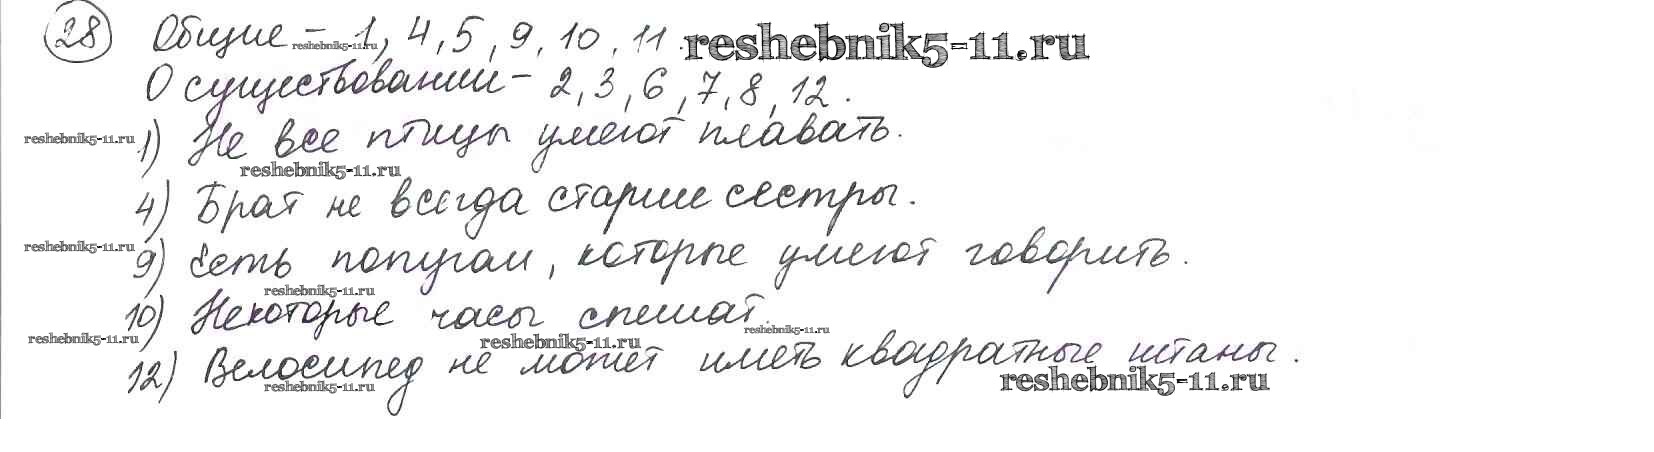 28 Общие - 1, 4, 5, 9, 10, 11. reshebnik5-11.ru
reshebnik5-11.ru
О существовании - 2, 3, 6, 7, 8, 12.
reshebnik5-11.ru
1) Не все птицы умеют плавать.
reshebnik5-11.ru
4) Брат не всегда старше сестры.
reshebnik5-11.ru
9) Есть попугаи, которые умеют говорить.
reshebnik5-11.ru
10) Некоторые часы спешат.
reshebnik5-11.ru
reshebnik5-11.ru
reshebnik5-11.ru
12) Велосипед не может иметь квадратные штаны.
reshebnik5-11.ru
reshebnik5-11.ru